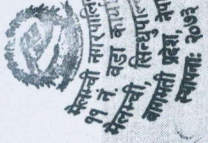 मेलम्ची नगरपालिका
११ नं. वडा कार्यालय
मेलम्ची, सिन्धुपाल्चोक
बागमती प्रदेश, नेपाल
स्थापनाः २०७३